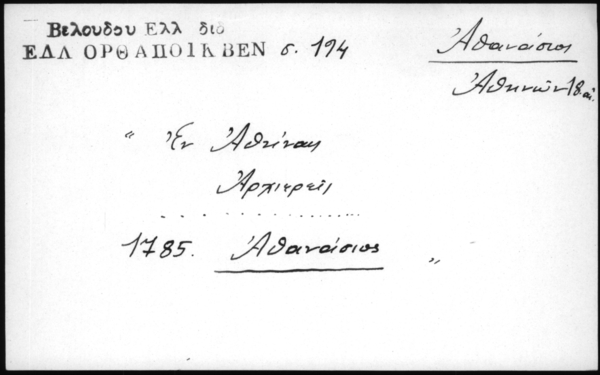 Βελουδου Ελλ διδ
ΕΛΛ ΟΡΘ ΑΠΟΙΚ ΒΕΝ σ. 194
Ἀθανάσιος
Ἀθηνῶν 18. αἰ.
" Ἐν Ἀθήναις
Ἀρχιερεῖς
. . . . . . . . . . . . . . .
1785. Ἀθανάσιος "